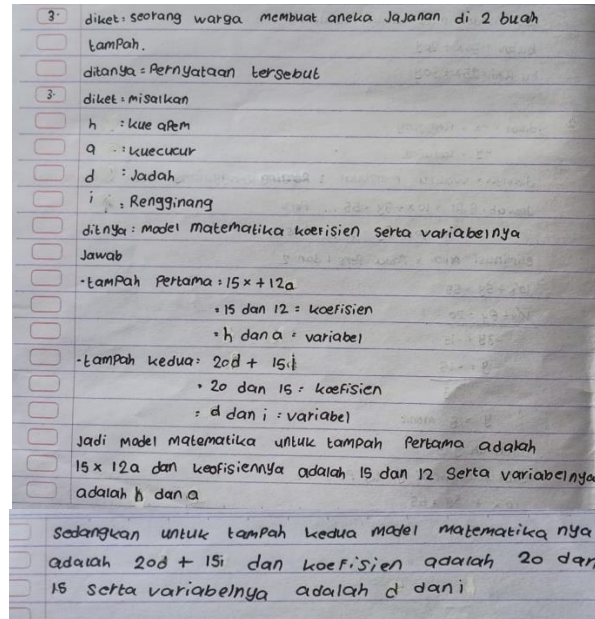 3. diket : seorang warga membuat aneka Jajanan di 2 buah
tampah.
ditanya = Pernyataan tersebut
3. diket : misalkan
h : kue apem
a : kuecucur
d : Jadah
i : Rengginang
ditnya : model matematika koefisien serta variabelnya
Jawab
- tampah Pertama : 15 x + 12a
= 15 dan 12 = koefisien
= h dan a = variabel
- tampah kedua : 20d + 15i
• 20 dan 15 : koefisien
: d dan i : variabel
Jadi model matematika untuk tampah Pertama adalah
15 x 12a dan keofisiennya adalah 15 dan 12 serta variabelnya
adalah h dan a
sedangkan untuk tampah kedua model matematika nya
adalah 20d + 15i dan koefisien adalah 20 dan
15 serta variabelnya adalah d dan i